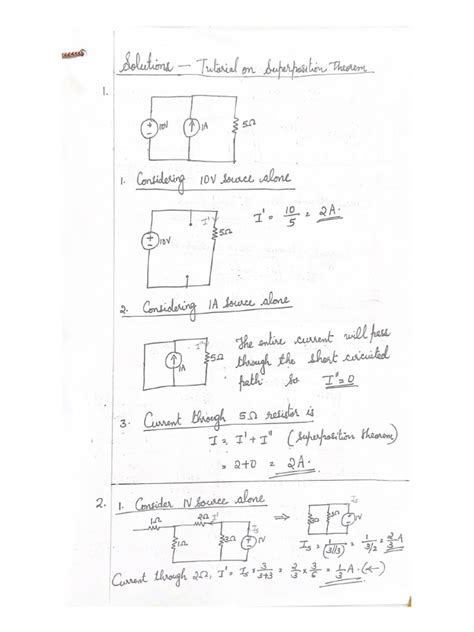 Solutions — Tutorial on Superposition Theorem
1.
10V
1A
5Ω
1. Considering 10V source alone
10V
I'
5Ω
I' = 10/5 = 2A.
2. Considering 1A source alone
1A
I"
5Ω
The entire current will pass
through the short circuited
path. So I" = 0
3. Current through 5Ω resistor is
I = I' + I" (Superposition theorem)
= 2+0 = 2A.
2. 1. Consider 1V source alone
1Ω 2Ω I'
1Ω 3Ω Is 1V
⇒
3Ω 3Ω Is 1V
Is = 1/(3||3) = 1/(3/2) = 2/3 A
Current through 2Ω, I' = Is × 3/(3+3) = 2/3 × 3/6 = 1/3 A. (←)